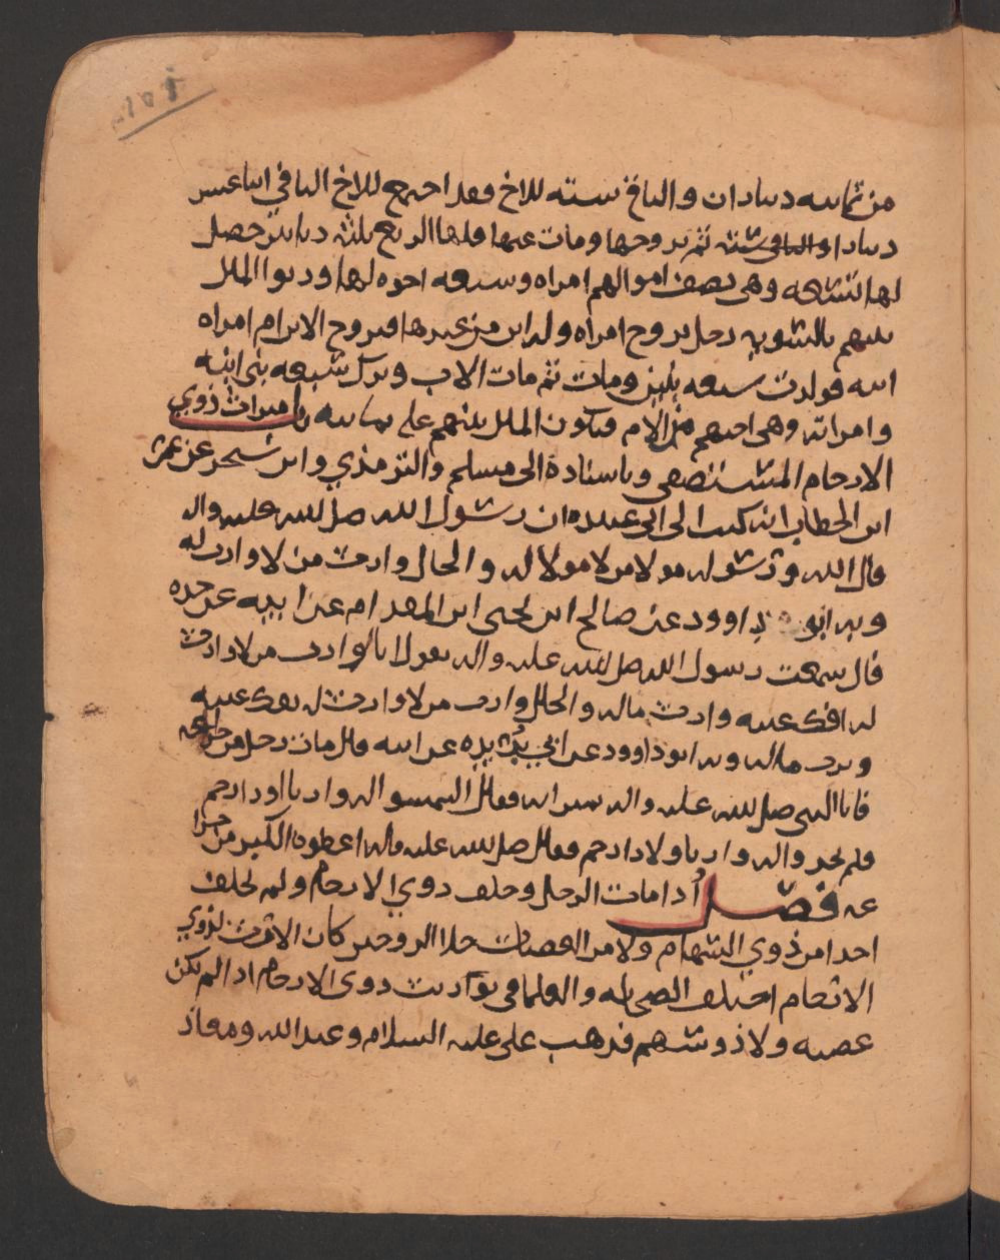 من ثمانيه ديناران والباقي سته للاخ فقد اجتمع للاخ الباقي اثنا عشر
دينارا والباقي سته ثم تزوجها ومات عنها فلها الربع ثلثه دنانير حصل
لها تسعه وهي نصف اموالهم امراه وسبعه اخوه لها ورثوا المال
بينهم بالسويه رجل تزوج امراه وله ابن من غيرها فتزوج الابن ام امراه
ابيه فولدت سبعه بنين ومات ثم مات الاب وترك سبعه بني ابنه
وامراته وهي اختهم من الام فيكون المال بينهم على ثمانيه باب ميراث ذوي
الارحام المستصفى وباسناده الى مسلم والترمذي وابن سنجر عن عمر
ابن الخطاب انه كتب الى ابي عبيده ان رسول الله صلى الله عليه واله
قال الله ورسوله مولا من لا مولا له والخال وارث من لا وارث له
وبه ابو داوود عن صالح ابن يحيى ابن المقدام عن ابيه عن جده
قال سمعت رسول الله صلى الله عليه واله يقول انا وارث من لا وارث
له افك عنيه وارث ماله والخال وارث من لا وارث له يفك عنيه
ويرث ماله وبه ابو داوود عن ابي بريده عن ابيه قال مات رجل من خزاعه
فاتا النبي صلى الله عليه واله بميراثه فقال التمسوا له وارثا او ذا رحم
فلم يجدوا له وارثا ولا ذا رحم فقال صلى الله عليه واله اعطوه الكبير من خزا
عه فصل اذا مات الرجل وخلف ذوي الارحام ولم يخلف
احدا من ذوي السهام ولا من العصبات خلا الزوجين كان الارث لذوي
الارحام اختلف الصحابه والعلما في توريث ذوي الارحام اذا لم يكن
عصبه ولا ذو سهم فذهب علي عليه السلام وعبد الله ومعاذ